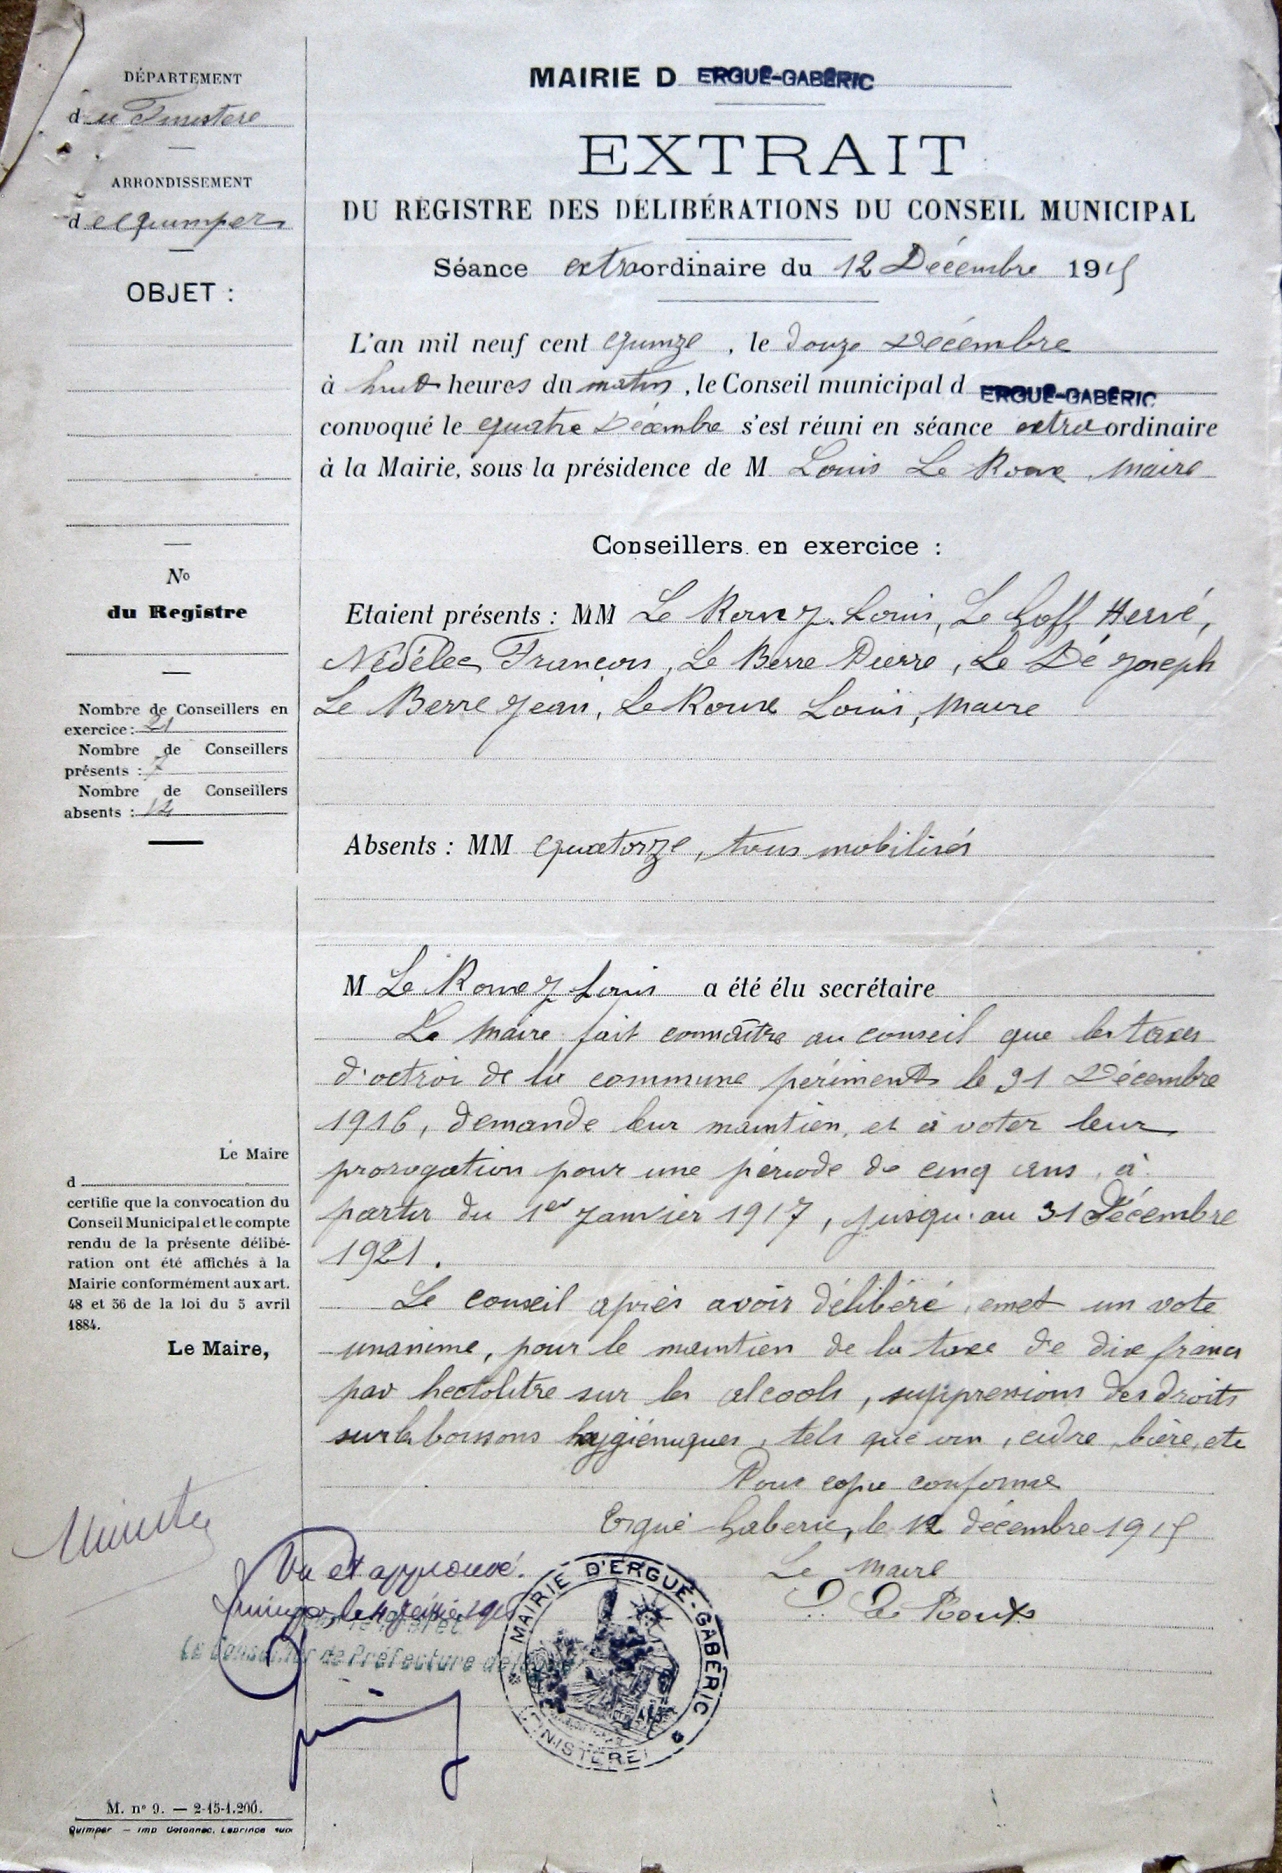 DÉPARTEMENT
du Finistere
ARRONDISSEMENT
de Quimper
OBJET :
No
du Registre
Nombre de Conseillers en
exercice : 21
Nombre de Conseillers
présents : 7
Nombre de Conseillers
absents : 14
Le Maire
d
certifie que la convocation du
Conseil Municipal et le compte
rendu de la présente délibé-
ration ont été affichés à la
Mairie conformément aux art.
48 et 56 de la loi du 5 avril
1884.
Le Maire,
MAIRIE D ERGUÉ-GABÉRIC
EXTRAIT
DU REGISTRE DES DÉLIBÉRATIONS DU CONSEIL MUNICIPAL
Séance extraordinaire du 12 Décembre 1915
L'an mil neuf cent quinze, le douze Décembre
à huit heures du matin, le Conseil municipal d ERGUÉ-GABÉRIC
convoqué le quatre Décembre s'est réuni en séance extraordinaire
à la Mairie, sous la présidence de M Louis Le Roux, maire
Conseillers en exercice :
Etaient présents : MM Le Rouzez Louis, Le Goff Hervé,
Nédélec François, Le Berre Pierre, Le Dé Joseph
Le Berre Jean, Le Roux Louis, maire
Absents : MM quatorze, tous mobilisés
M Le Rouzez Louis a été élu secrétaire
Le maire fait connaître au conseil que les taxes
d'octroi de la commune périment le 31 Décembre
1916, demande leur maintien, et à voter leur
prorogation pour une période de cinq ans, à
partir du 1er janvier 1917, jusqu'au 31 Décembre
1921.
Le conseil après avoir délibéré, emet un vote
unanime, pour le maintien de la taxe de dix francs
par hectolitre sur les alcools, suppressions des droits
sur les boissons hygiéniques, tels que vin, cidre, bière, etc
Pour copie conforme
Ergué Gaberic, le 12 décembre 1915
Le maire
L Le Roux
Vu et approuvé.
Quimper, le
Le Conseiller de Préfecture délégué
MAIRIE D'ERGUÉ-GABÉRIC
(FINISTÈRE)
M. no 9. — 2-15-1.200.
Quimper — Imp